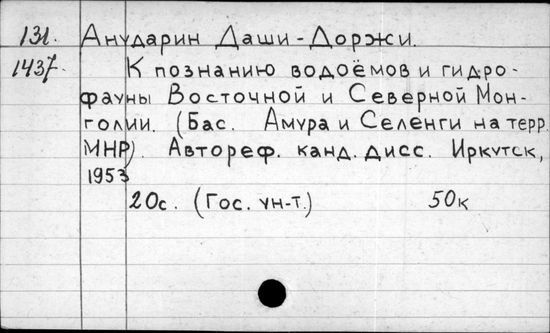 131. Анударин Даши-Доржи.
1437. К познанию водоёмов и гидро-
фауны Восточной и Северной Мон-
голии. (Бас. Амура и Селенги на терр.
МНР). Автореф. канд. дисс. Иркутск,
1953
20с. (Гос. ун-т.) 50к